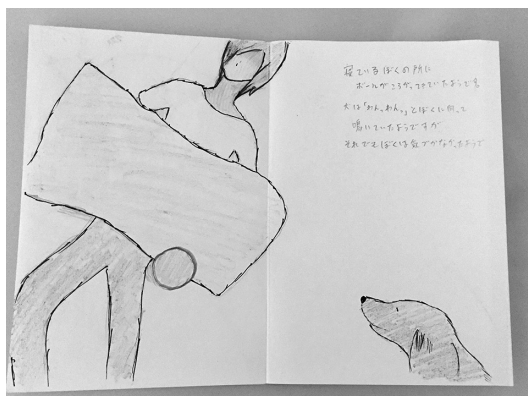 寝ているぼくの所に
ボールがころがってきていたようで
犬は「わん、わん。」とぼくに向って
鳴いていたようですが
それでもぼくは気づかなかったようで